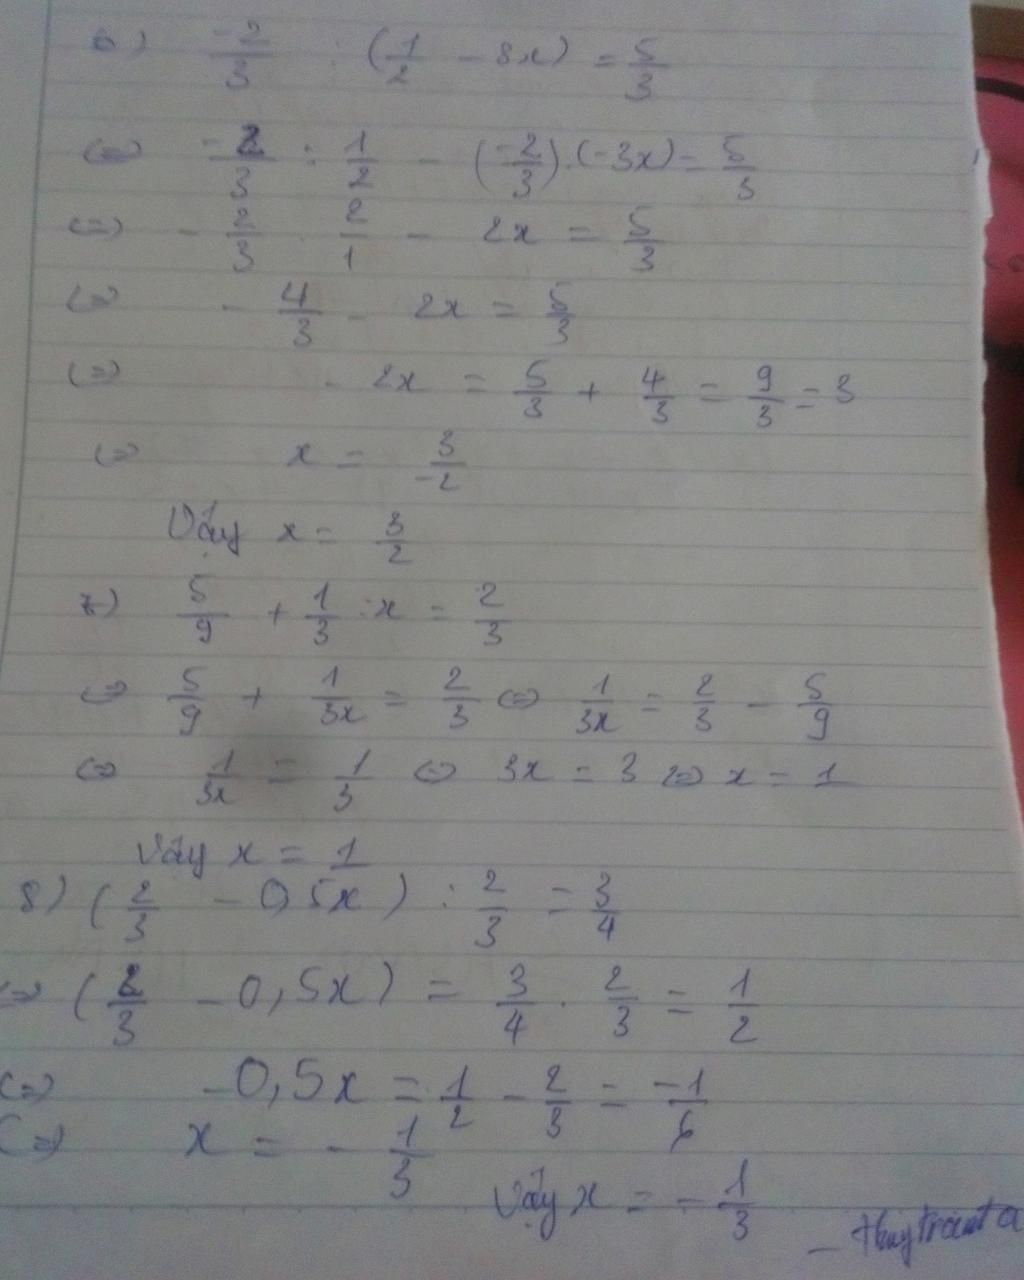 6) -2/3 : (1/2 - 3x) = 5/3
<=> -2/3 : 1/2 - (-2/3).(-3x) = 5/3
<=> - 2/3 . 2/1 - 2x = 5/3
<=> - 4/3 - 2x = 5/3
<=> - 2x = 5/3 + 4/3 = 9/3 = 3
<=> x = 3/-2
Vậy x = 3/2
7) 5/9 + 1/3 : x = 2/3
<=> 5/9 + 1/3x = 2/3 <=> 1/3x = 2/3 - 5/9
<=> 1/3x = 1/3 <=> 3x = 3 <=> x = 1
Vậy x = 1
8) (2/3 - 0,5x) : 2/3 = 3/4
<=> (2/3 - 0,5x) = 3/4 . 2/3 = 1/2
<=> -0,5x = 1/2 - 2/3 = -1/6
<=> x = - 1/3
Vậy x = - 1/3